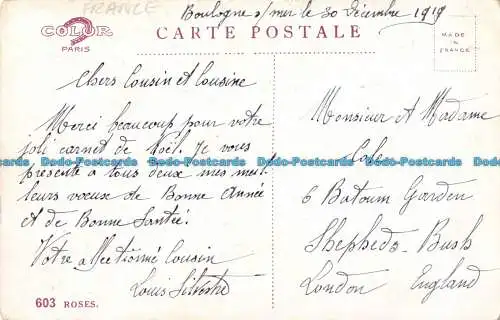 FRANCE
Boulogne s/mer le 30 Décembre 1919
COLOR
PARIS
CARTE POSTALE
MADE
in
FRANCE
Chers Cousin et Cousine
Merci beaucoup pour votre
joli carnet de Noël. Je vous
présente à tous deux mes meil
leurs vœux de Bonne Année
et de Bonne Santée.
Votre affectionné Cousin
Louis Silvestre
Monsieur et Madame
6 Batoum Garden
Shepheds. Bush
London England
Dodo-Postcards Dodo-Postcards Dodo-Postcards Dodo-Postcards Dodo-Postcards Dodo-Postcards
603 ROSES.